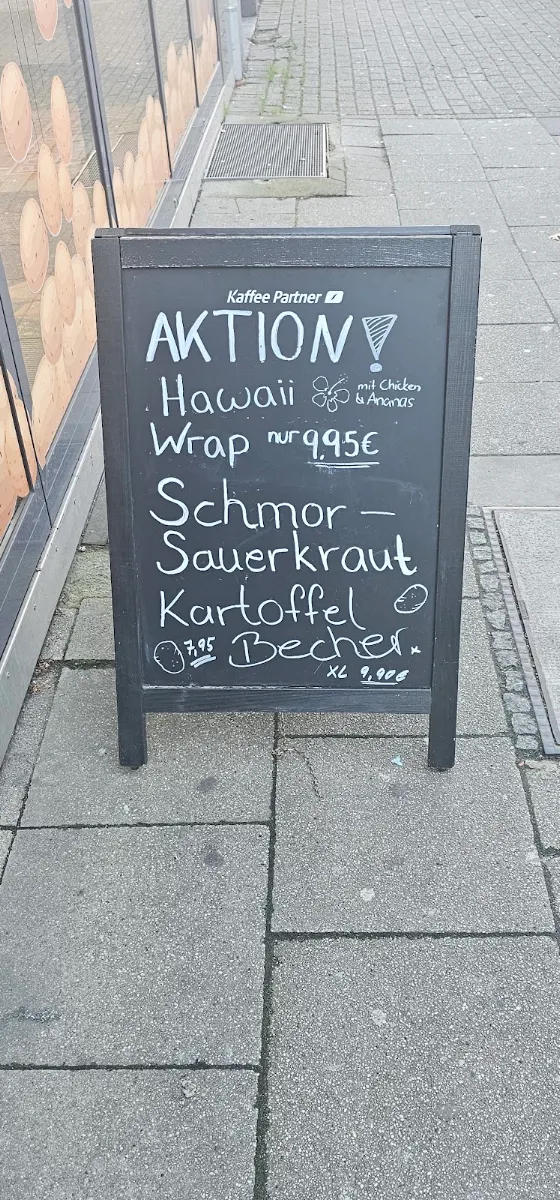 Kaffee Partner
AKTION!
Hawaii mit Chicken
& Ananas
Wrap nur 9,95€
Schmor-
Sauerkraut
Kartoffel
7,95 Becher
XL 9,90€